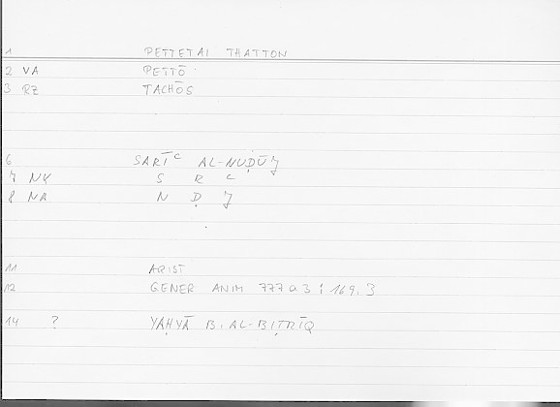 1 PETTETAI THATTON
2 VA PETTŌ
3 RZ TACHŌS
6 SARĪᶜ AL-NUḌŪJ
7 S R ᶜ
8 NA N Ḍ J
11 ARIST
12 GENER ANIM 777 a 3 ; 169.3
14 ? YAḤYĀ B. AL-BIṬRĪQ